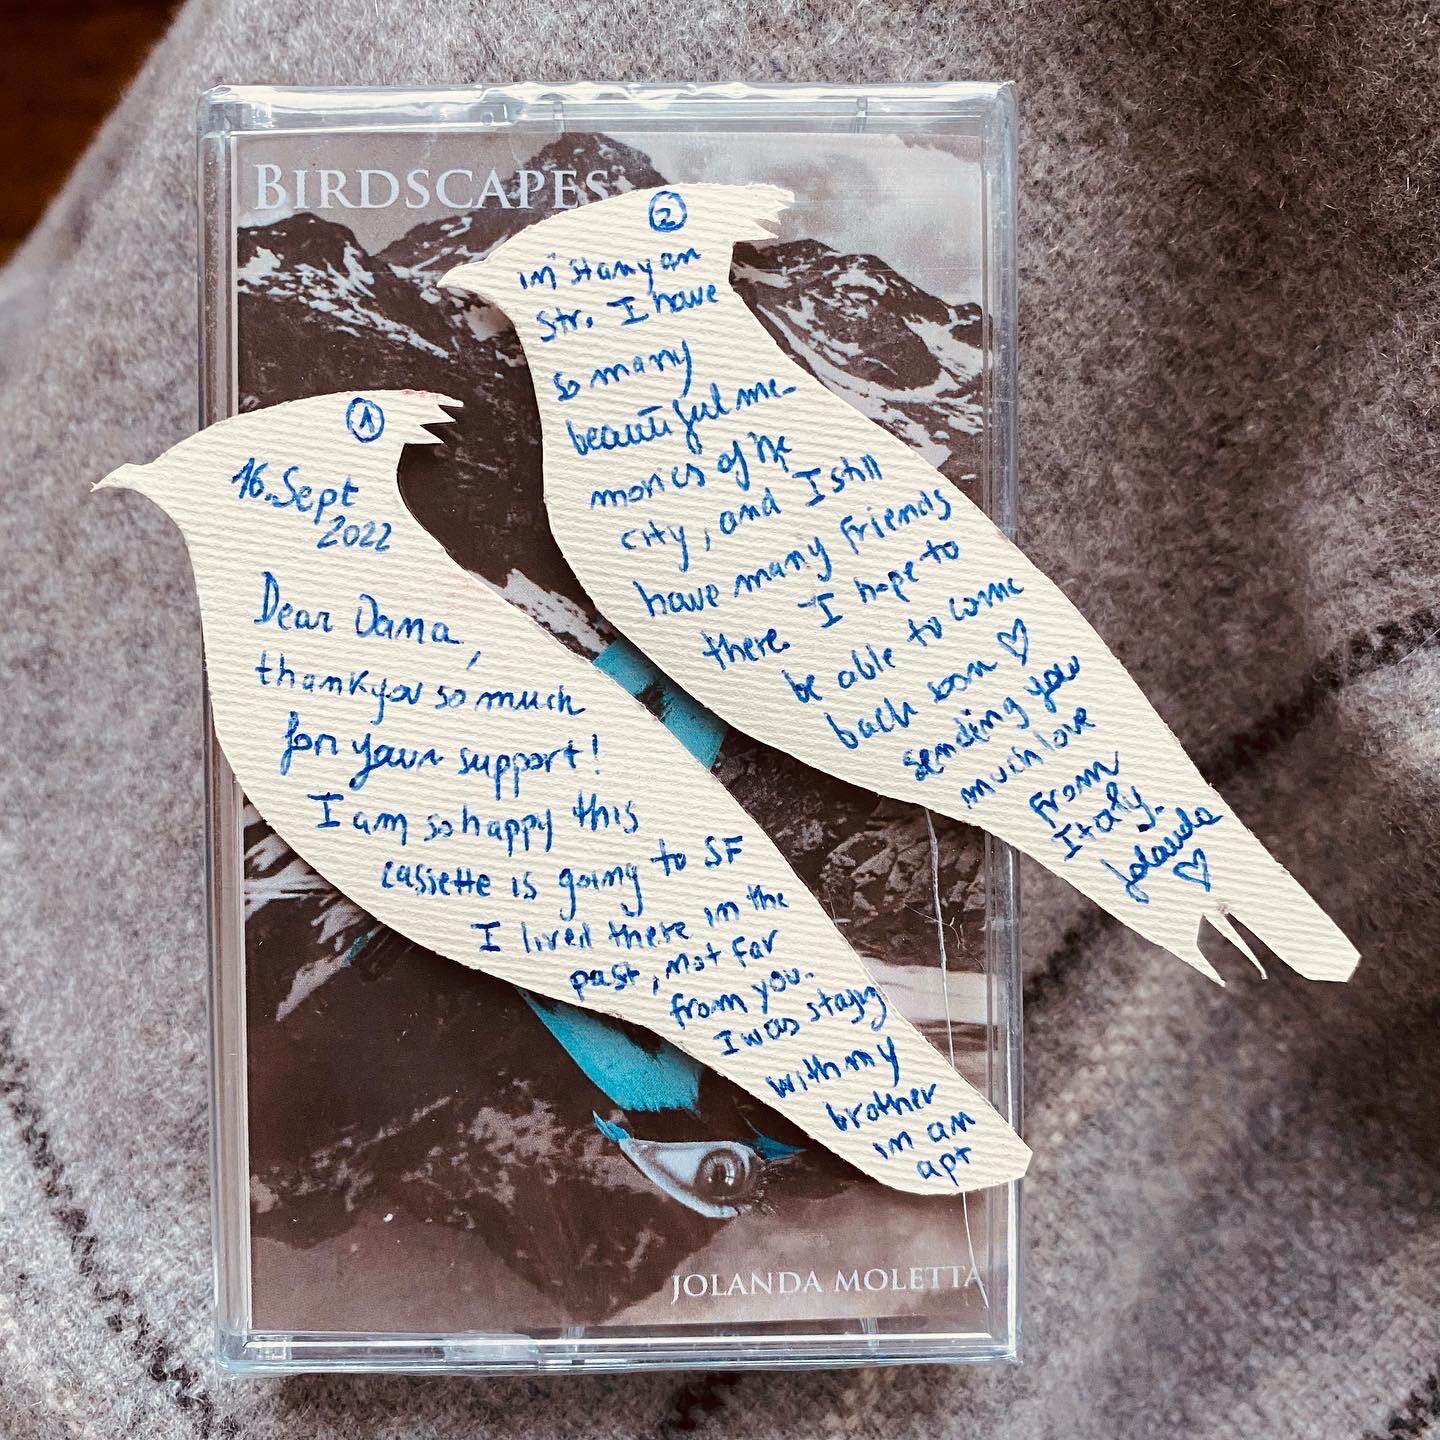 BIRDSCAPES
①
16. Sept
2022
Dear Dana,
thank you so much
for your support!
I am so happy this
cassette is going to SF
I lived there in the
past, not far
from you.
I was stayig
with my
brother
in an
apt
②
in Stanyan
Str. I have
so many
beautiful me-
mories of the
city, and I still
have many friends
there. I hope to
be able to come
back soon ♡
sending you
much love
from
Italy.
Jolanda
♡
JOLANDA MOLETTA